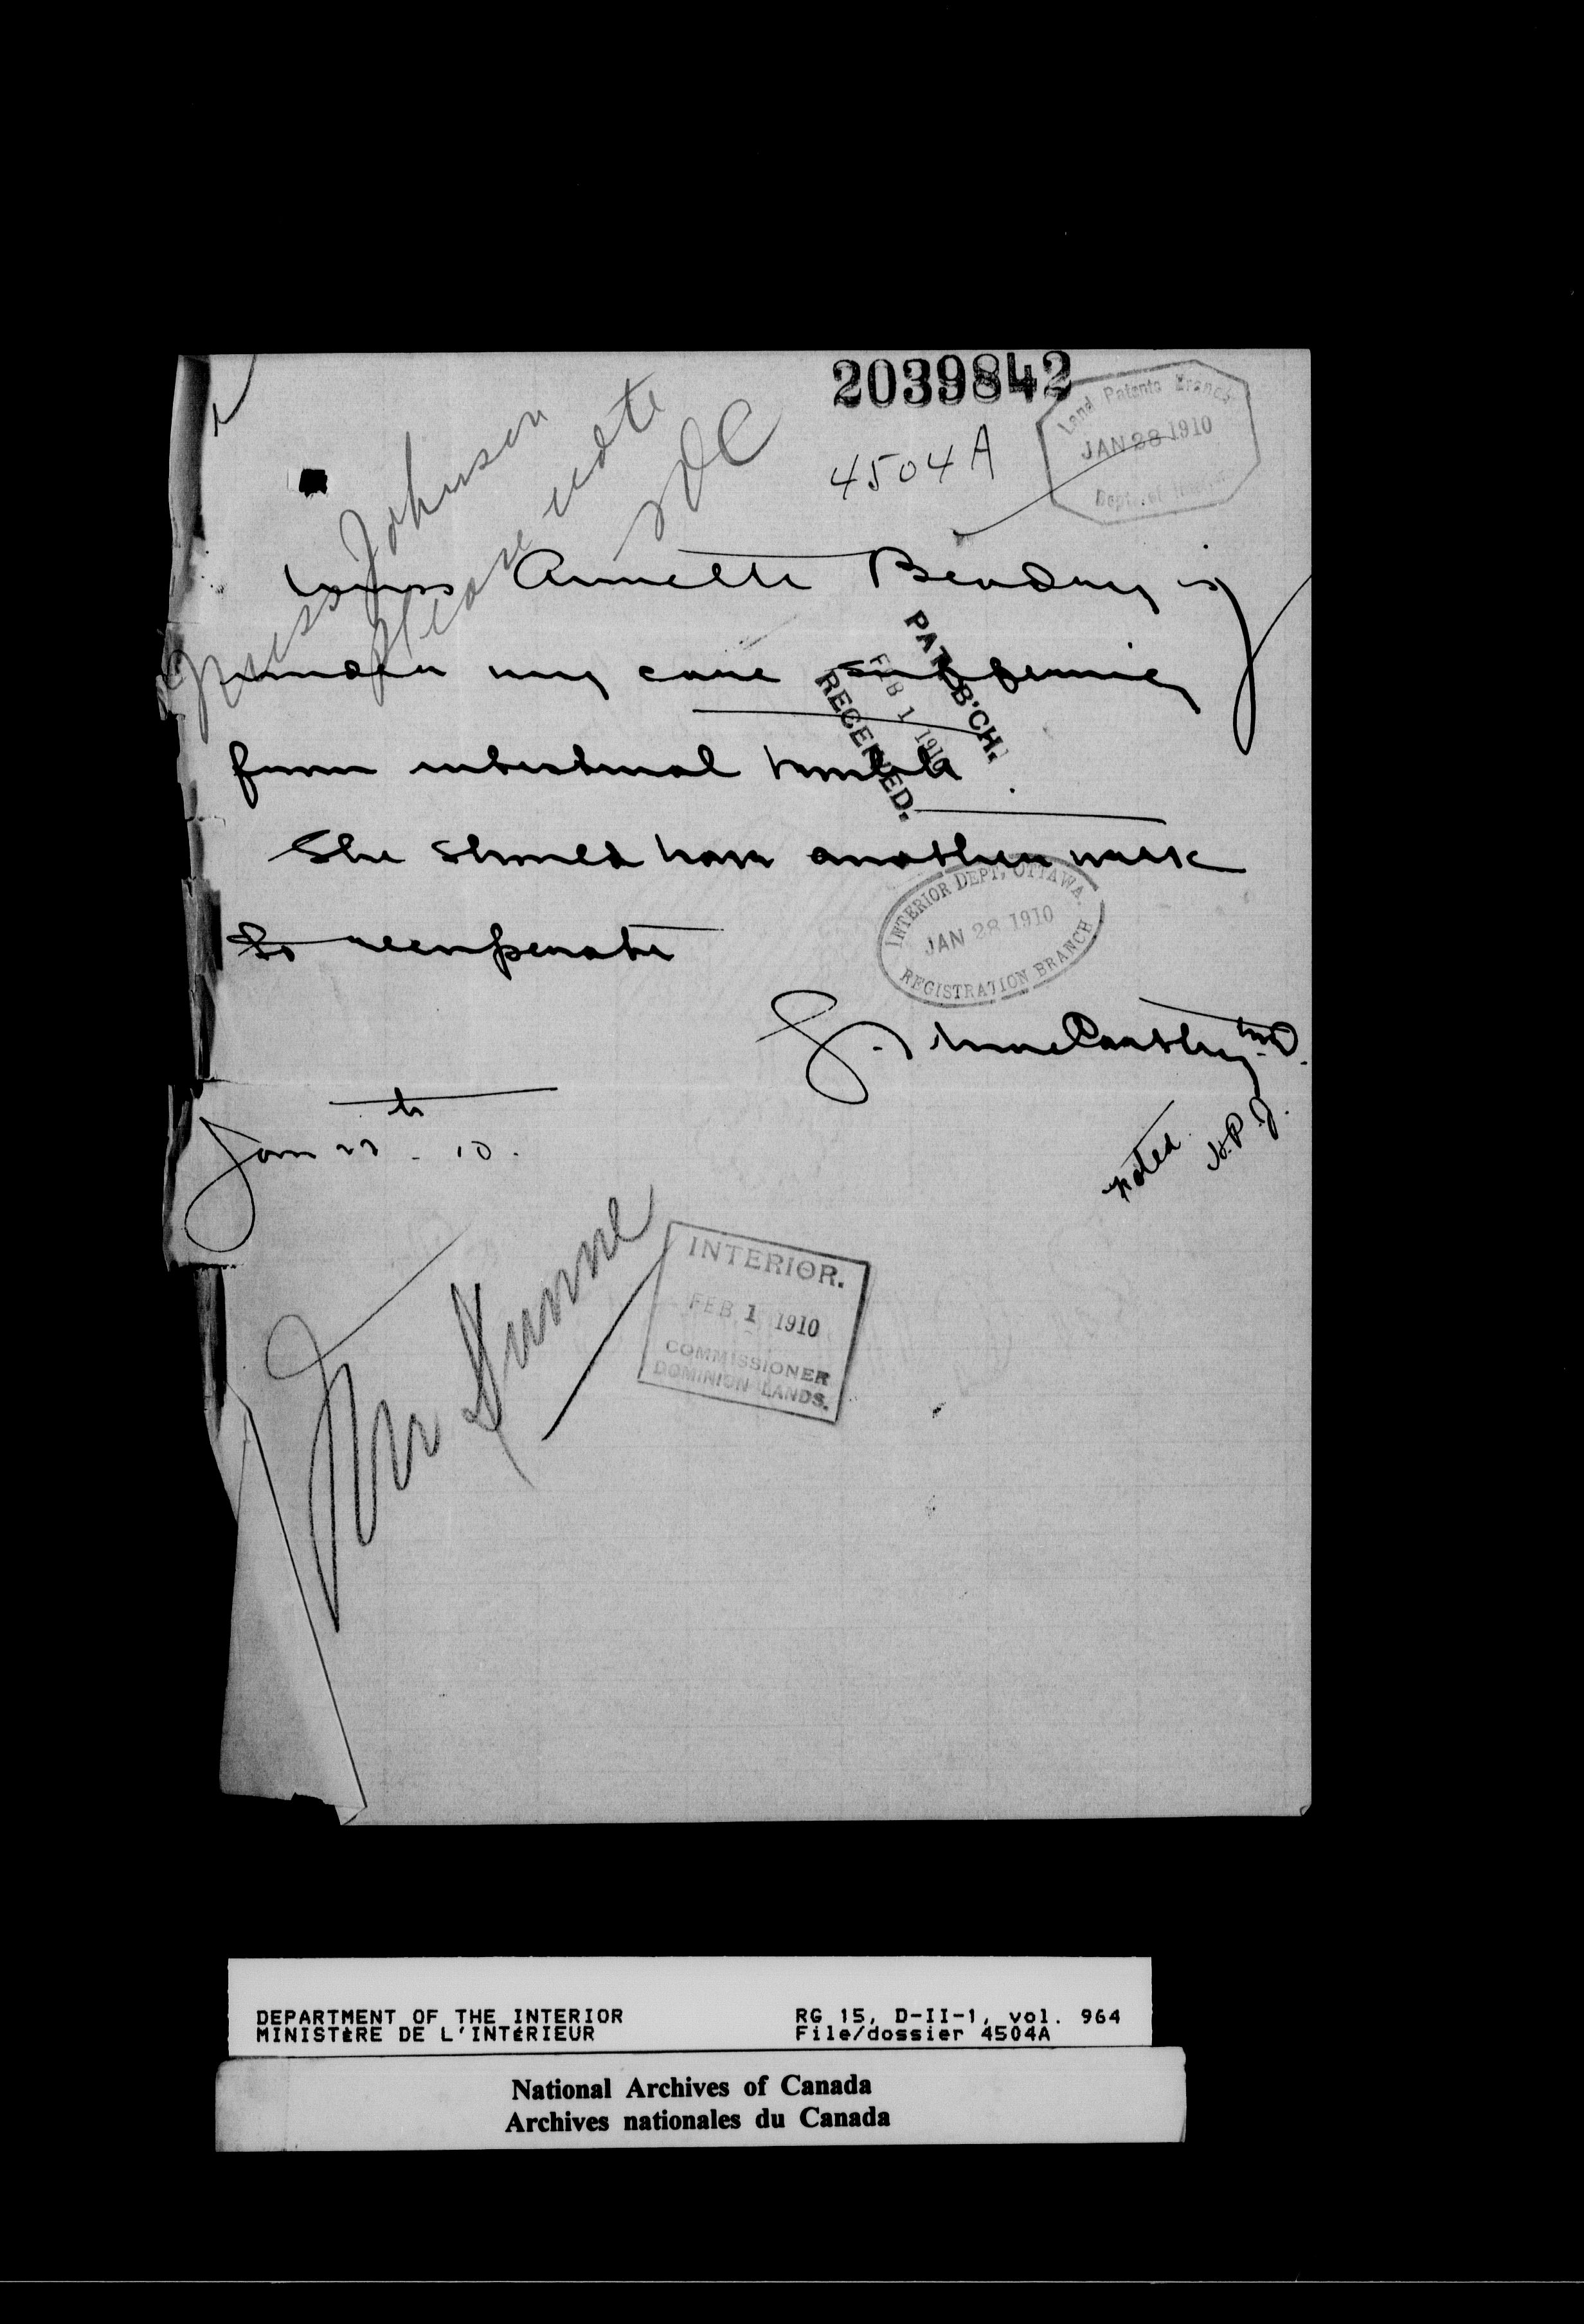 2039842
4504A
Land Patents Branch
JAN 28 1910
Dept. of Interior
Miss Johnson
please note
Miss Annette Beaudry is
under my care suffering
from intestinal trouble.
She should have another week
to recuperate
PAT. B'CH.
FEB 1 1910
RECEIVED.
INTERIOR DEPT, OTTAWA.
JAN 28 1910
REGISTRATION BRANCH
MacCarthy M.D.
Jan 27th. 10.
noted
Mr Dunne
INTERIOR.
FEB 1 1910
COMMISSIONER
DOMINION LANDS.
DEPARTMENT OF THE INTERIOR RG 15, D-II-1, vol. 964
MINISTÈRE DE L'INTÉRIEUR File/dossier 4504A
National Archives of Canada
Archives nationales du Canada